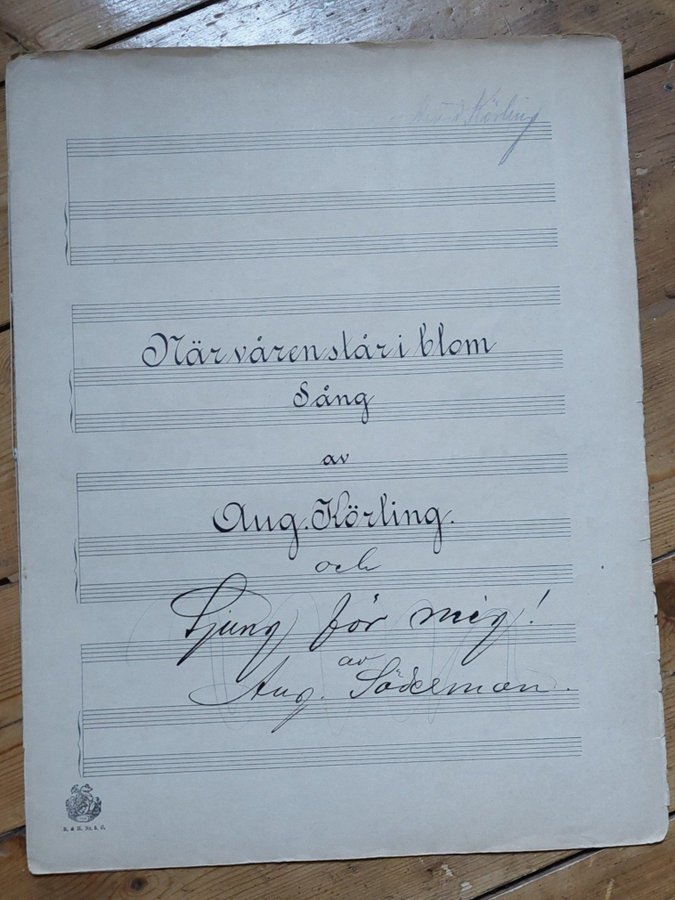 Körling
När våren står i blom
Sång
av
Aug. Körling.
och
Sjung för mig!
av
Aug. Söderman.
B. & H. Nr. 5. C.